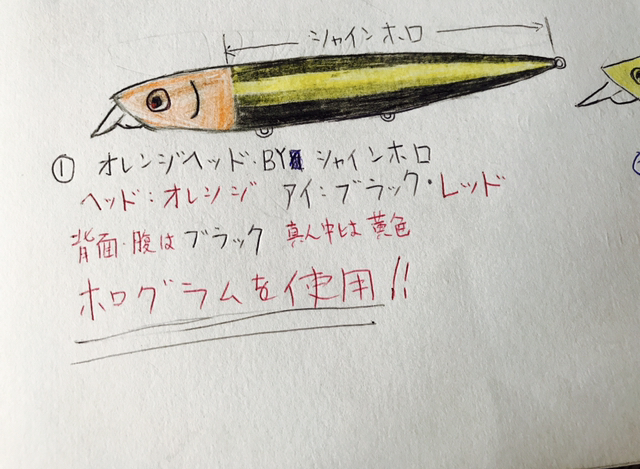 シャインホロ
① オレンジヘッド・BY シャインホロ
ヘッド:オレンジ アイ:ブラック・レッド
背面・腹はブラック 真ん中は黄色
ホログラムを使用!!